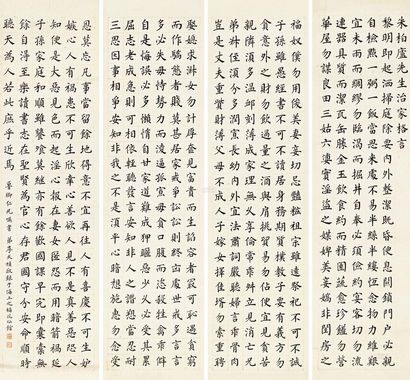 朱柏廬先生治家格言
黎明即起洒掃庭除要內外整潔既昏便息關鎖門戶必親
自檢點一粥一飯當思來處不易半絲半縷恆念物力維艱
宜未雨而綢繆勿臨渴而掘井自奉必須儉約宴客切勿留
連器具質而潔瓦缶勝金玉飲食約而精園蔬愈珍饈勿營
華屋勿謀良田三姑六婆實淫盜之媒婢美妾嬌非閨房之
福奴僕勿用俊美妻妾切忌豔粧祖宗雖遠祭祀不可不誠
子孫雖愚經書不可不讀居身務期質樸教子要有義方勿
貪意外之財勿飲過量之酒與肩挑貿易勿佔便宜見貧苦
親鄰須多溫卹刻薄成家理無久享倫常乖舛立見消亡兄
弟叔姪須分多潤寡長幼內外宜法肅詞嚴聽婦言乖骨肉
豈是丈夫重資財薄父母不成人子嫁女擇佳壻毋索重聘
娶媳求淑女勿計厚奩見富貴而生諂容者最可恥遇貧窮
而作驕態者賤莫甚居家戒爭訟訟則終凶處世戒多言言
多必失毋恃勢力而凌逼孤寡毋貪口腹而恣殺牲禽乖僻
自是悔誤必多頹惰自甘家道難成狎暱惡少久必受其累
屈志老成急則可相依輕聽發言安知非人之譖愬當忍耐
三思因事相爭安知非我之不是須平心暗想施惠勿念受
恩莫忘凡事當留餘地得意不宜再往人有喜慶不可生妒
嫉心人有禍患不可生欣幸心善欲人見不是真善惡恐人
知便是大惡見色而起淫心報在妻女匿怨而用暗箭禍延
子孫家庭和順雖饔飧莫繼亦有餘歡國課早完即囊橐無
餘自得至樂讀書志在聖賢為官心存君國守分安命順時
聽天為人若此庶乎近焉